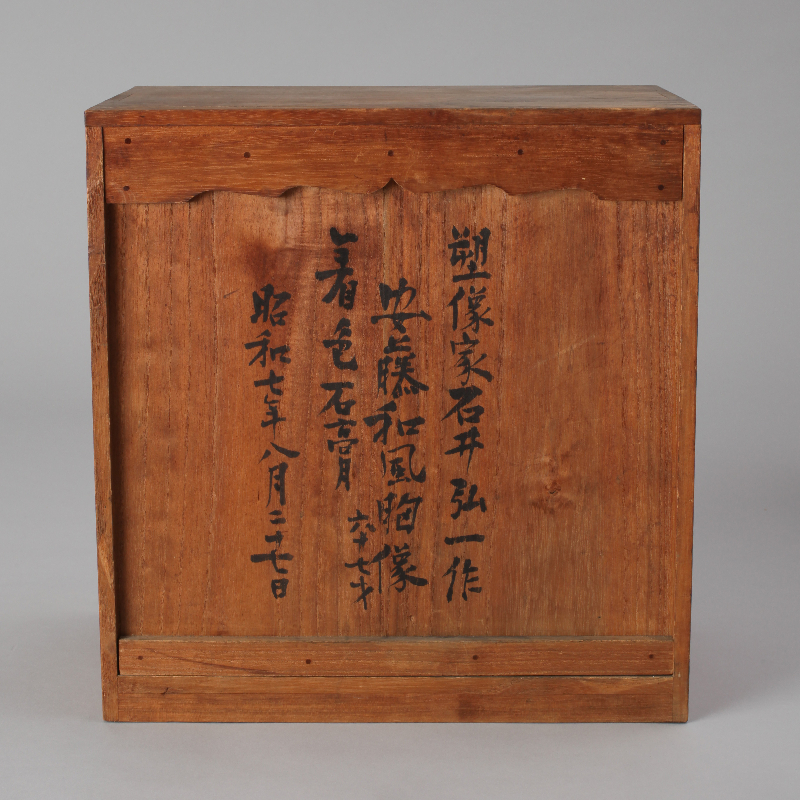 塑像家石井弘一作
安藤和風胸像
六十七才
着色石膏
昭和七年八月二十七日